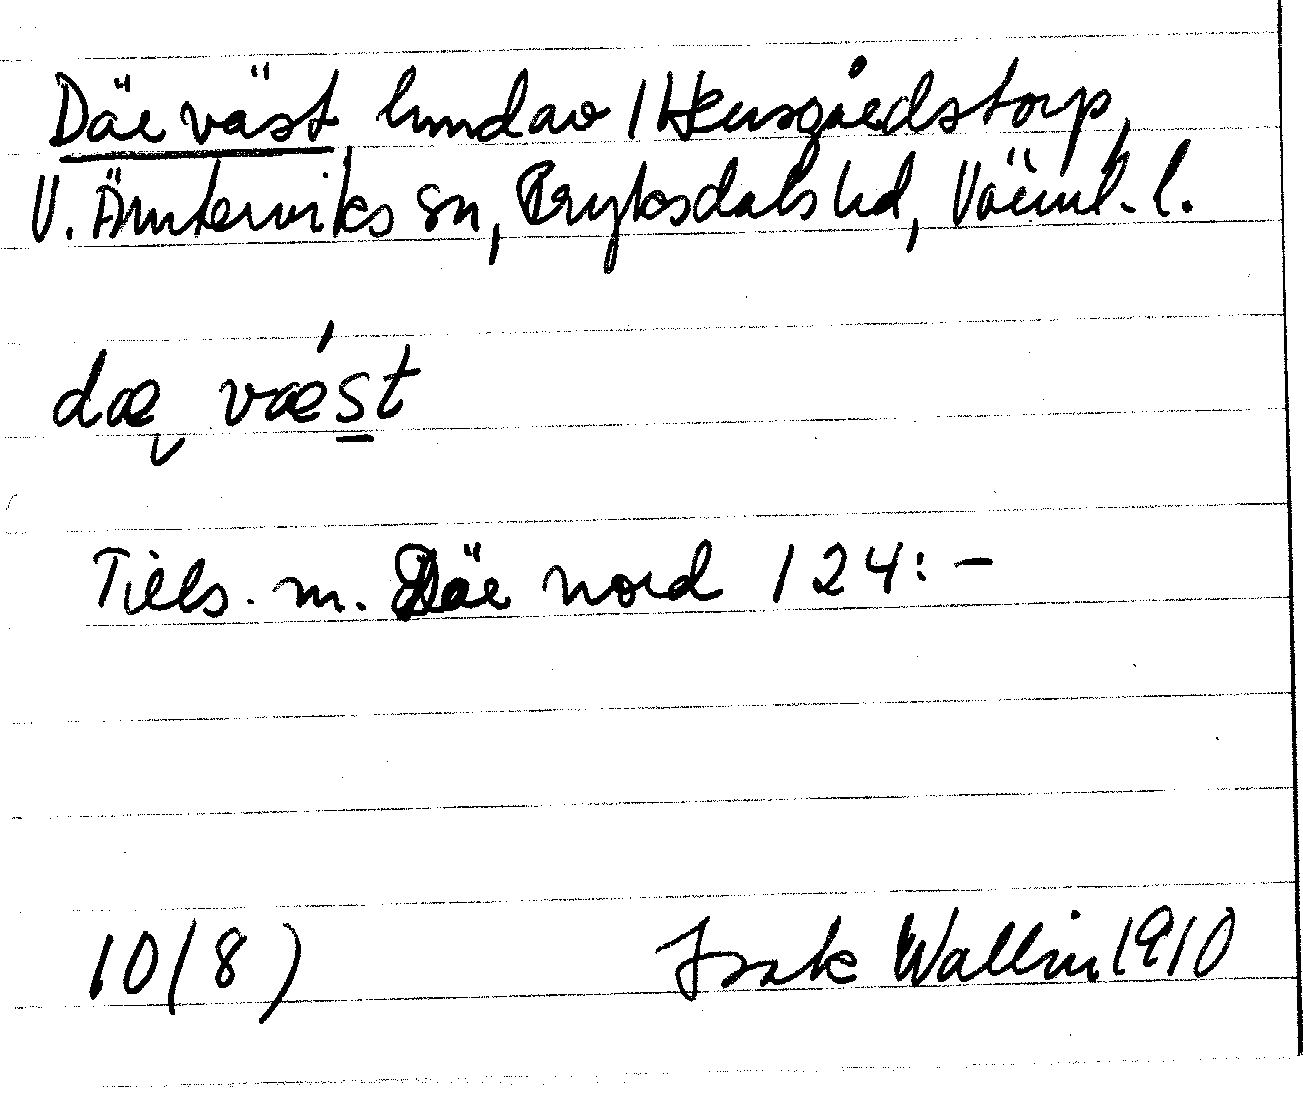 Där väst, hmd av 1 Hensgårdstorp,
V. Ämterviks sn, Fryksdals hd, Värml. l.
dæ væ´st
Tills. m. Där nord 124:-
10(8) Isak Wallin 1910